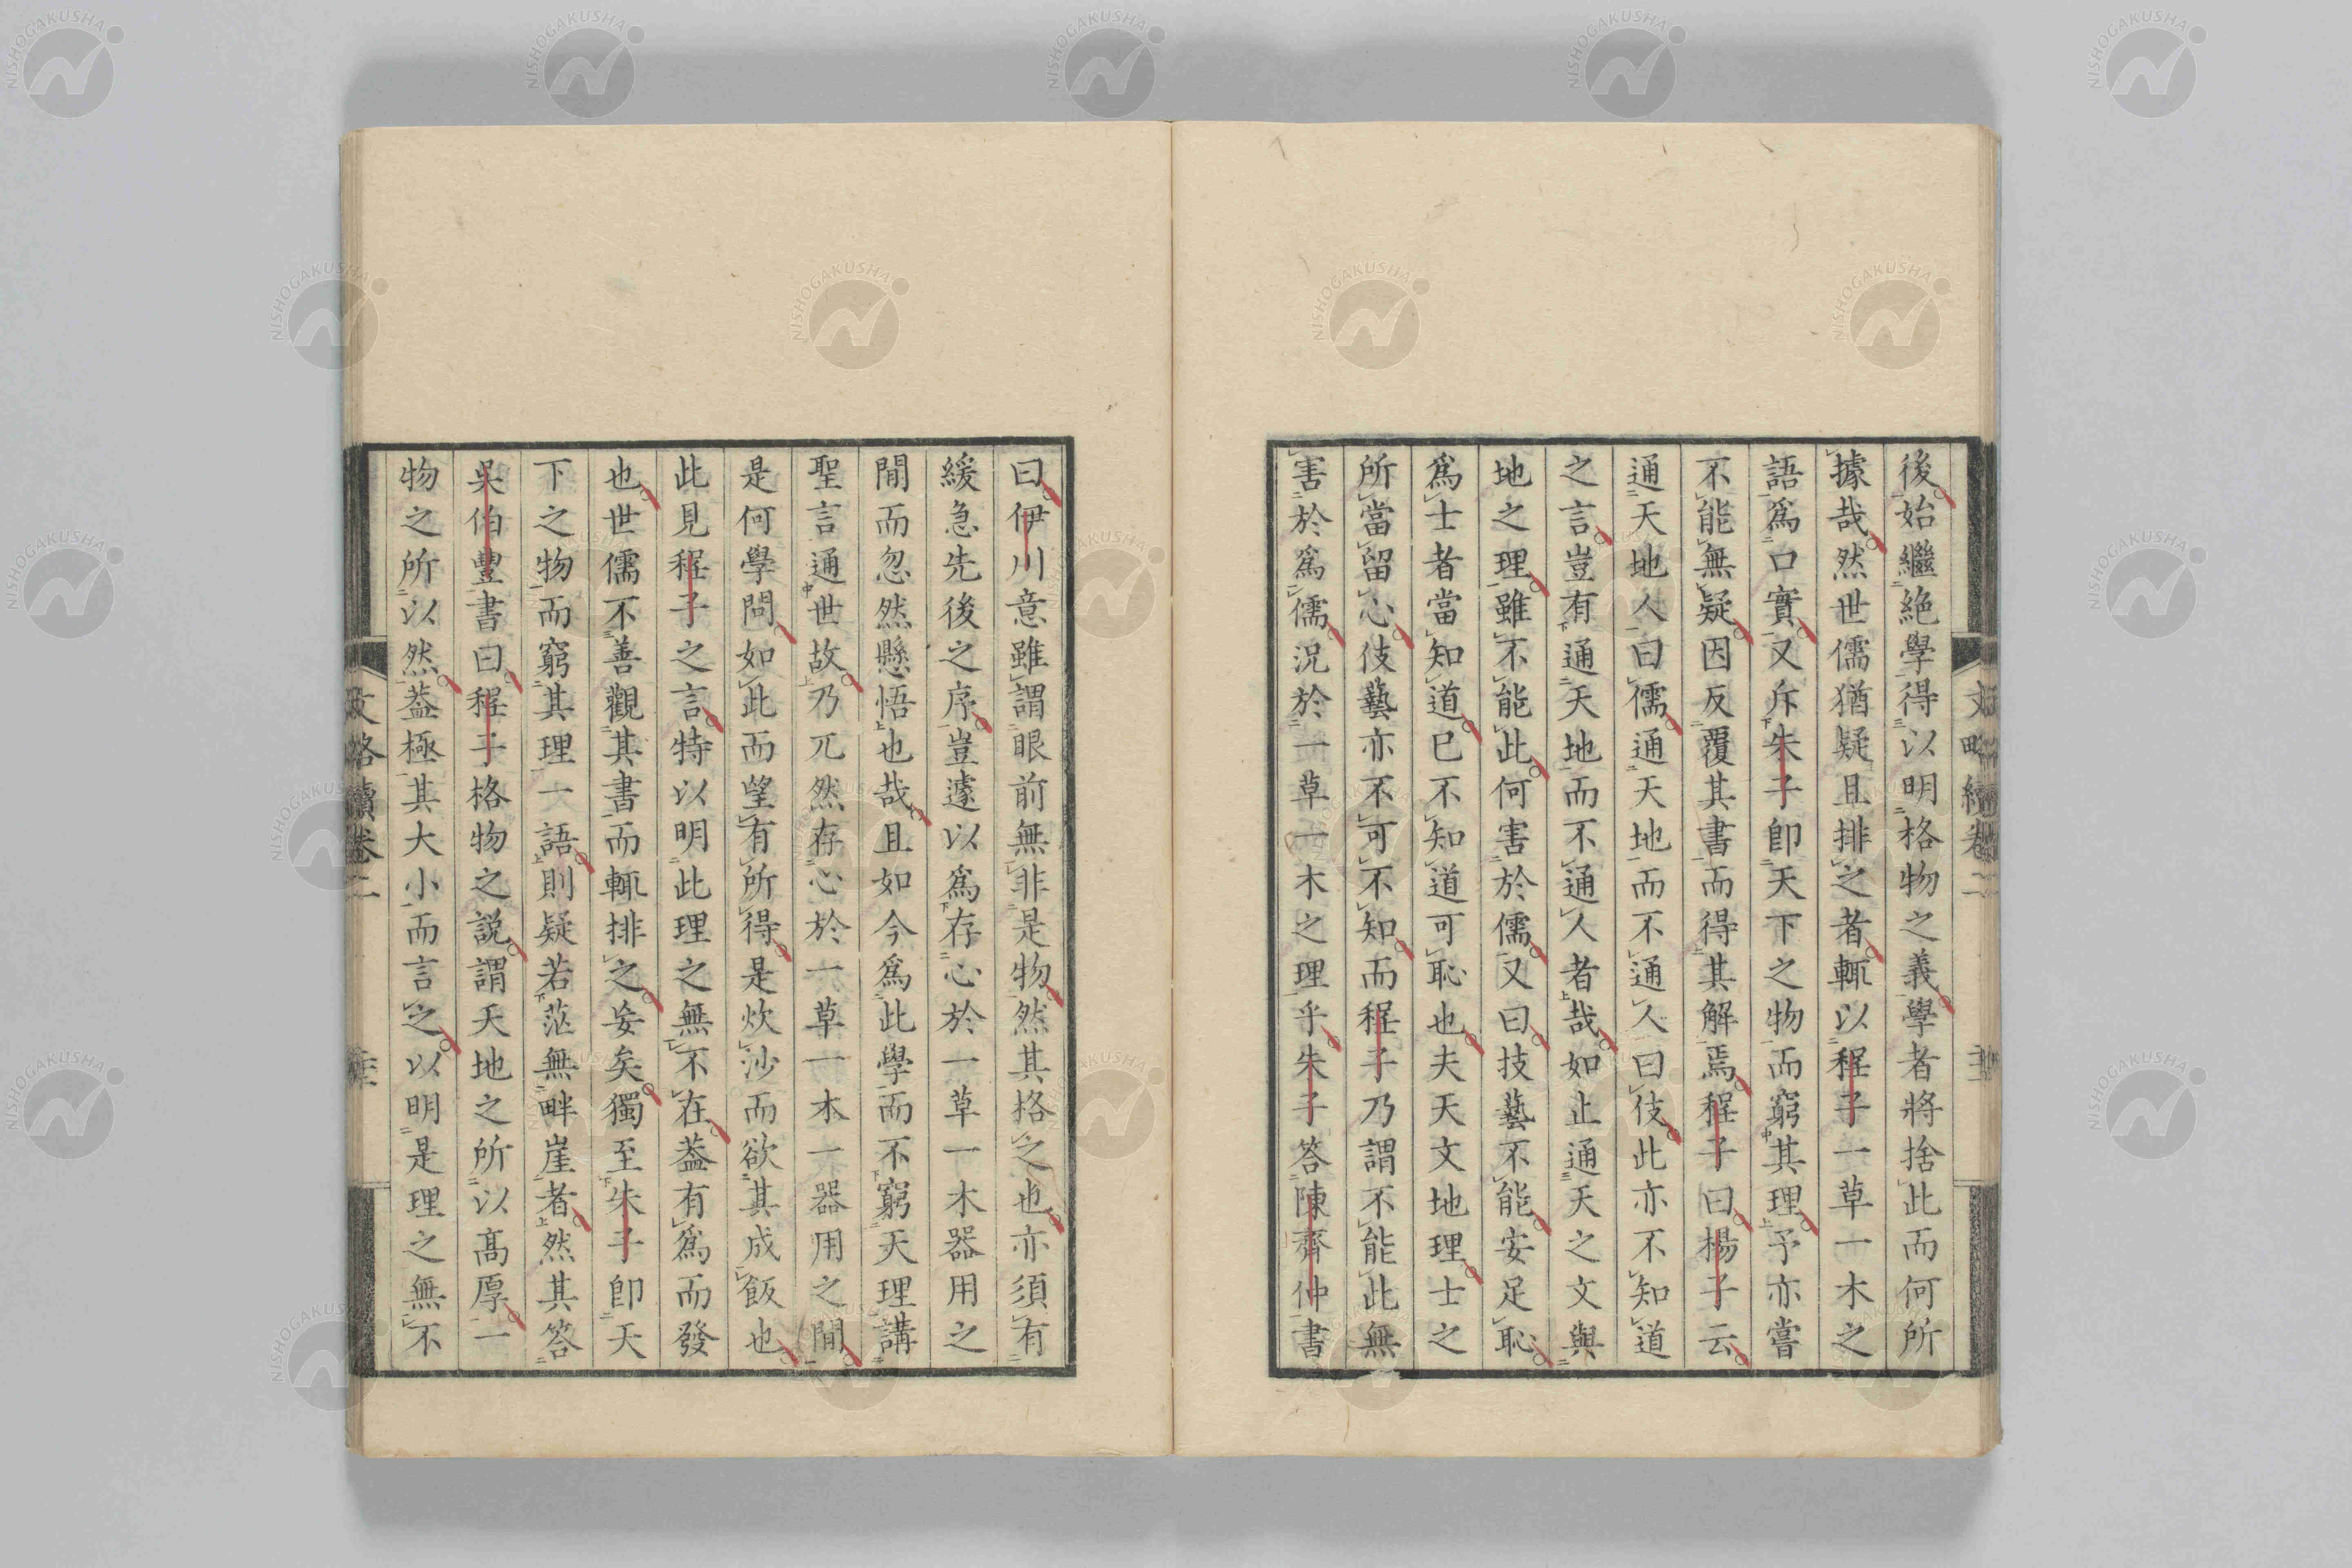 後始繼絕學得以明格物之義學者將捨此而何所
據哉然世儒猶疑且排之者輒以程子一草一木之
語爲口實又斥朱子卽天下之物而窮其理予亦嘗
不能無疑因反覆其書而得其解焉程子曰楊子云
通天地人曰儒通天地而不通人曰伎此亦不知道
之言豈有通天地而不通人者哉如止通天之文與
地之理雖不能此何害於儒又曰技藝不能安足恥
爲士者當知道已不知道可恥也夫天文地理士之
所當留心伎藝亦不可不知而程子乃謂不能此無
害於爲儒況於一草一木之理乎朱子答陳齊仲書
曰伊川意雖謂眼前無非是物然其格之也亦須有
緩急先後之序豈遽以爲存心於一草一木器用之
閒而忽然懸悟也哉且如今爲此學而不窮天理講
聖言通世故乃兀然存心於一草一木一器用之閒
是何學問如此而望有所得是炊沙而欲其成飯也
此見程子之言特以明此理之無不在葢有爲而發
也世儒不善觀其書而輒排之妄矣獨至朱子卽天
下之物而窮其理一語則疑若茫無畔崖者然其答
吳伯豐書曰程子格物之説謂天地之所以高厚一
物之所以然葢極其大小而言之以明是理之無不
文略續卷二
NISHOGAKUSHA